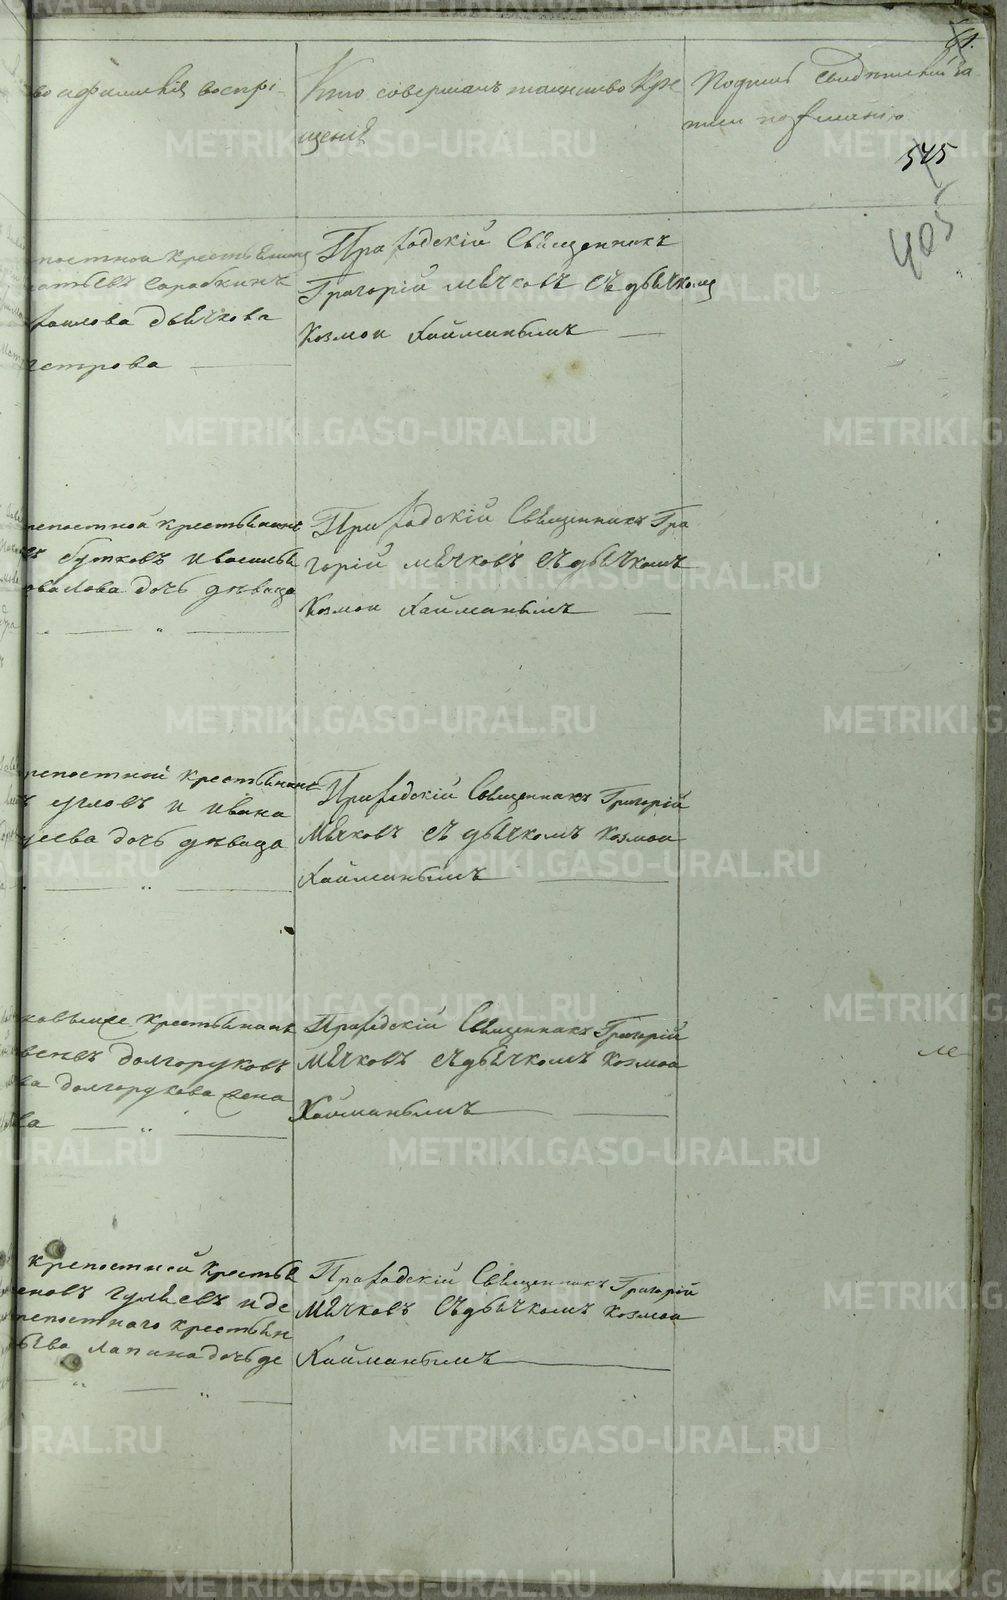 61.
во и фамилія воспрі-
Кто совершалъ таинство Кре
щенія
Подпись свидѣтелей за
писи по желанію
545
405
крестьянинъ
Коробкинъ
дьячкова
петрова
Приходскій Священникъ
Григорій Мѣчковъ съ дьячкомъ
Козмои Хайминымъ
репостной крестьянинъ
въ Бутковъ и василья
овалова дочь дѣвица
Приходскій Священникъ Гри
горій мѣчковъ съ дьячкомъ
Козмои Хайминымъ
репостной крестьянинъ
углов и ивана
еева дочь дѣвица
Приходскій Священникъ Григорій
Мѣчковъ съ дьячкомъ Козмои
Хайминымъ
крестьянинъ
долгоруковъ
ова долгорукова жена
ва
Приходскій Священникъ Григорій
Мѣчковъ съ дьячкомъ Козмои
Хайминымъ
крепостной крестья
еновъ гулѣевъ и де
репостного крестьян
ьева лапина дочь де
Приходскій Священникъ Григорій
Мѣчковъ съ дьячкомъ Козмои
Хайминымъ
METRIKI.GASO-URAL.RU